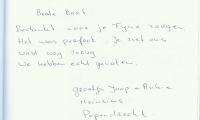 Beste Bries
Bedankt voor je fijne zorgen.
Het was perfect. Je ziet ons
vast nog terug
We hebben echt genoten.
groetjes Jaap + Rukie
Heinsius
Papendrecht